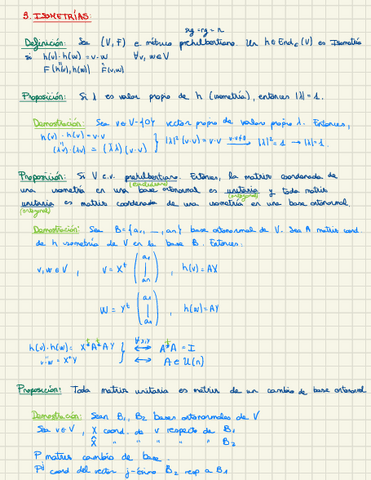 3. ISOMETRÍAS
rg = rg = n
Definición: Sea (V, F) e métrico prehilbertiano. Un h ∈ End_ℂ(V) es Isometría
si h(v)·h(w) = v·w ∀v, w ∈ V
F(h(v), h(w)) F(v, w)
Proposición: Si λ es valor propio de h (isometría), entonces |λ| = 1.
Demostración: Sea v ∈ V-{0} vector propio de valor propio λ. Entonces,
h(v)·h(v) = v·v
(λv)·(λv) = (λλ̄)(v·v) } |λ|²(v·v) = v·v → |λ|² = 1 → |λ| = 1.
Proposición: Si V e.v. prehilbertiano. Entonces, la matriz coordenada de
(euclídeo)
una isometría en una base ortonormal es unitaria y toda matriz
(ortogonal)
unitaria es matriz coordenada de una isometría en una base ortonormal
(ortogonal)
Demostración: Sea B = {a₁, ..., aₙ} base ortonormal de V. Sea A matriz coord.
de h isometría de V en la base B. Entonces:
v, w ∈ V, v = Xᵗ (a₁ ⋮ aₙ), h(v) = AX
w = Yᵗ (a₁ ⋮ aₙ), h(w) = AY
∀x,y
h(v)·h(w) = X*A*AY } ⟺ A*A = I
v·w = X*Y } ⟺ A ∈ U(n)
Proposición: Toda matriz unitaria es matriz de un cambio de base ortonormal.
Demostración: Sean B₁, B₂ bases ortonormales de V
Sea v ∈ V, X coord. de v respecto de B₁
X̂ " " " " " B₂
P matriz cambio de base.
Pʲ coord del vector j-ésimo B₂ resp a B₁